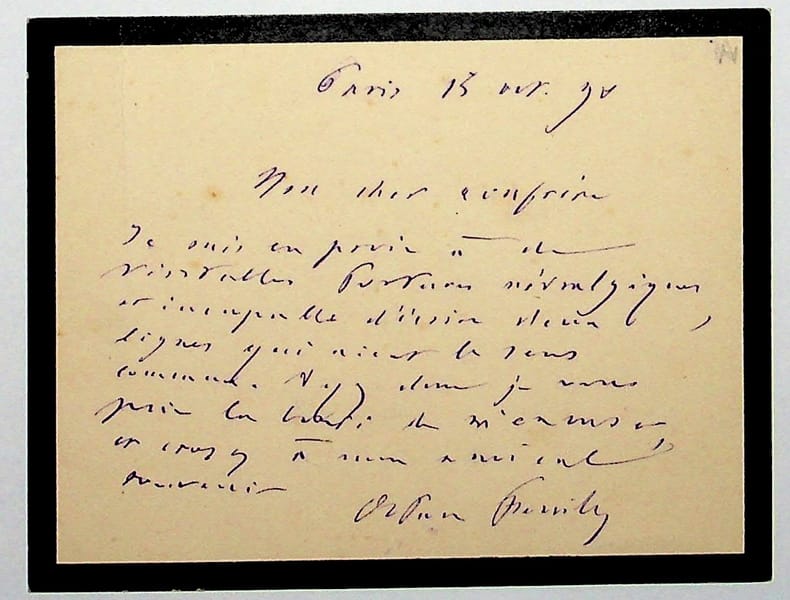 Paris 13 oct. 90
Mon cher confrère
Je suis en proie à de
véritables tortures névralgiques
et incapable d'écrire deux
lignes qui aient le sens
commun. Ayez donc je vous
prie la bonté de m'excuser,
et croyez à mon amical
souvenir
Octave Feuillet